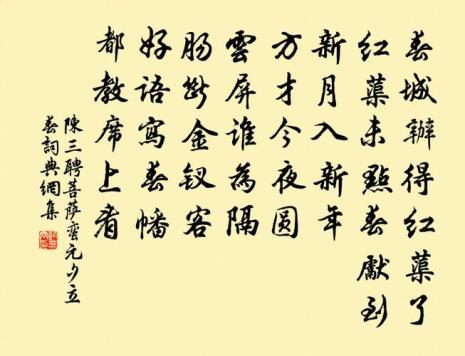 春城辦得紅蕖了
紅蕖未點春獻到
新月入新年
方才今夜圓
雲屏誰為隔
腸斷金釵客
好語寫春幡
都教席上看
陳三聘菩薩蠻元夕立
春詞典網集